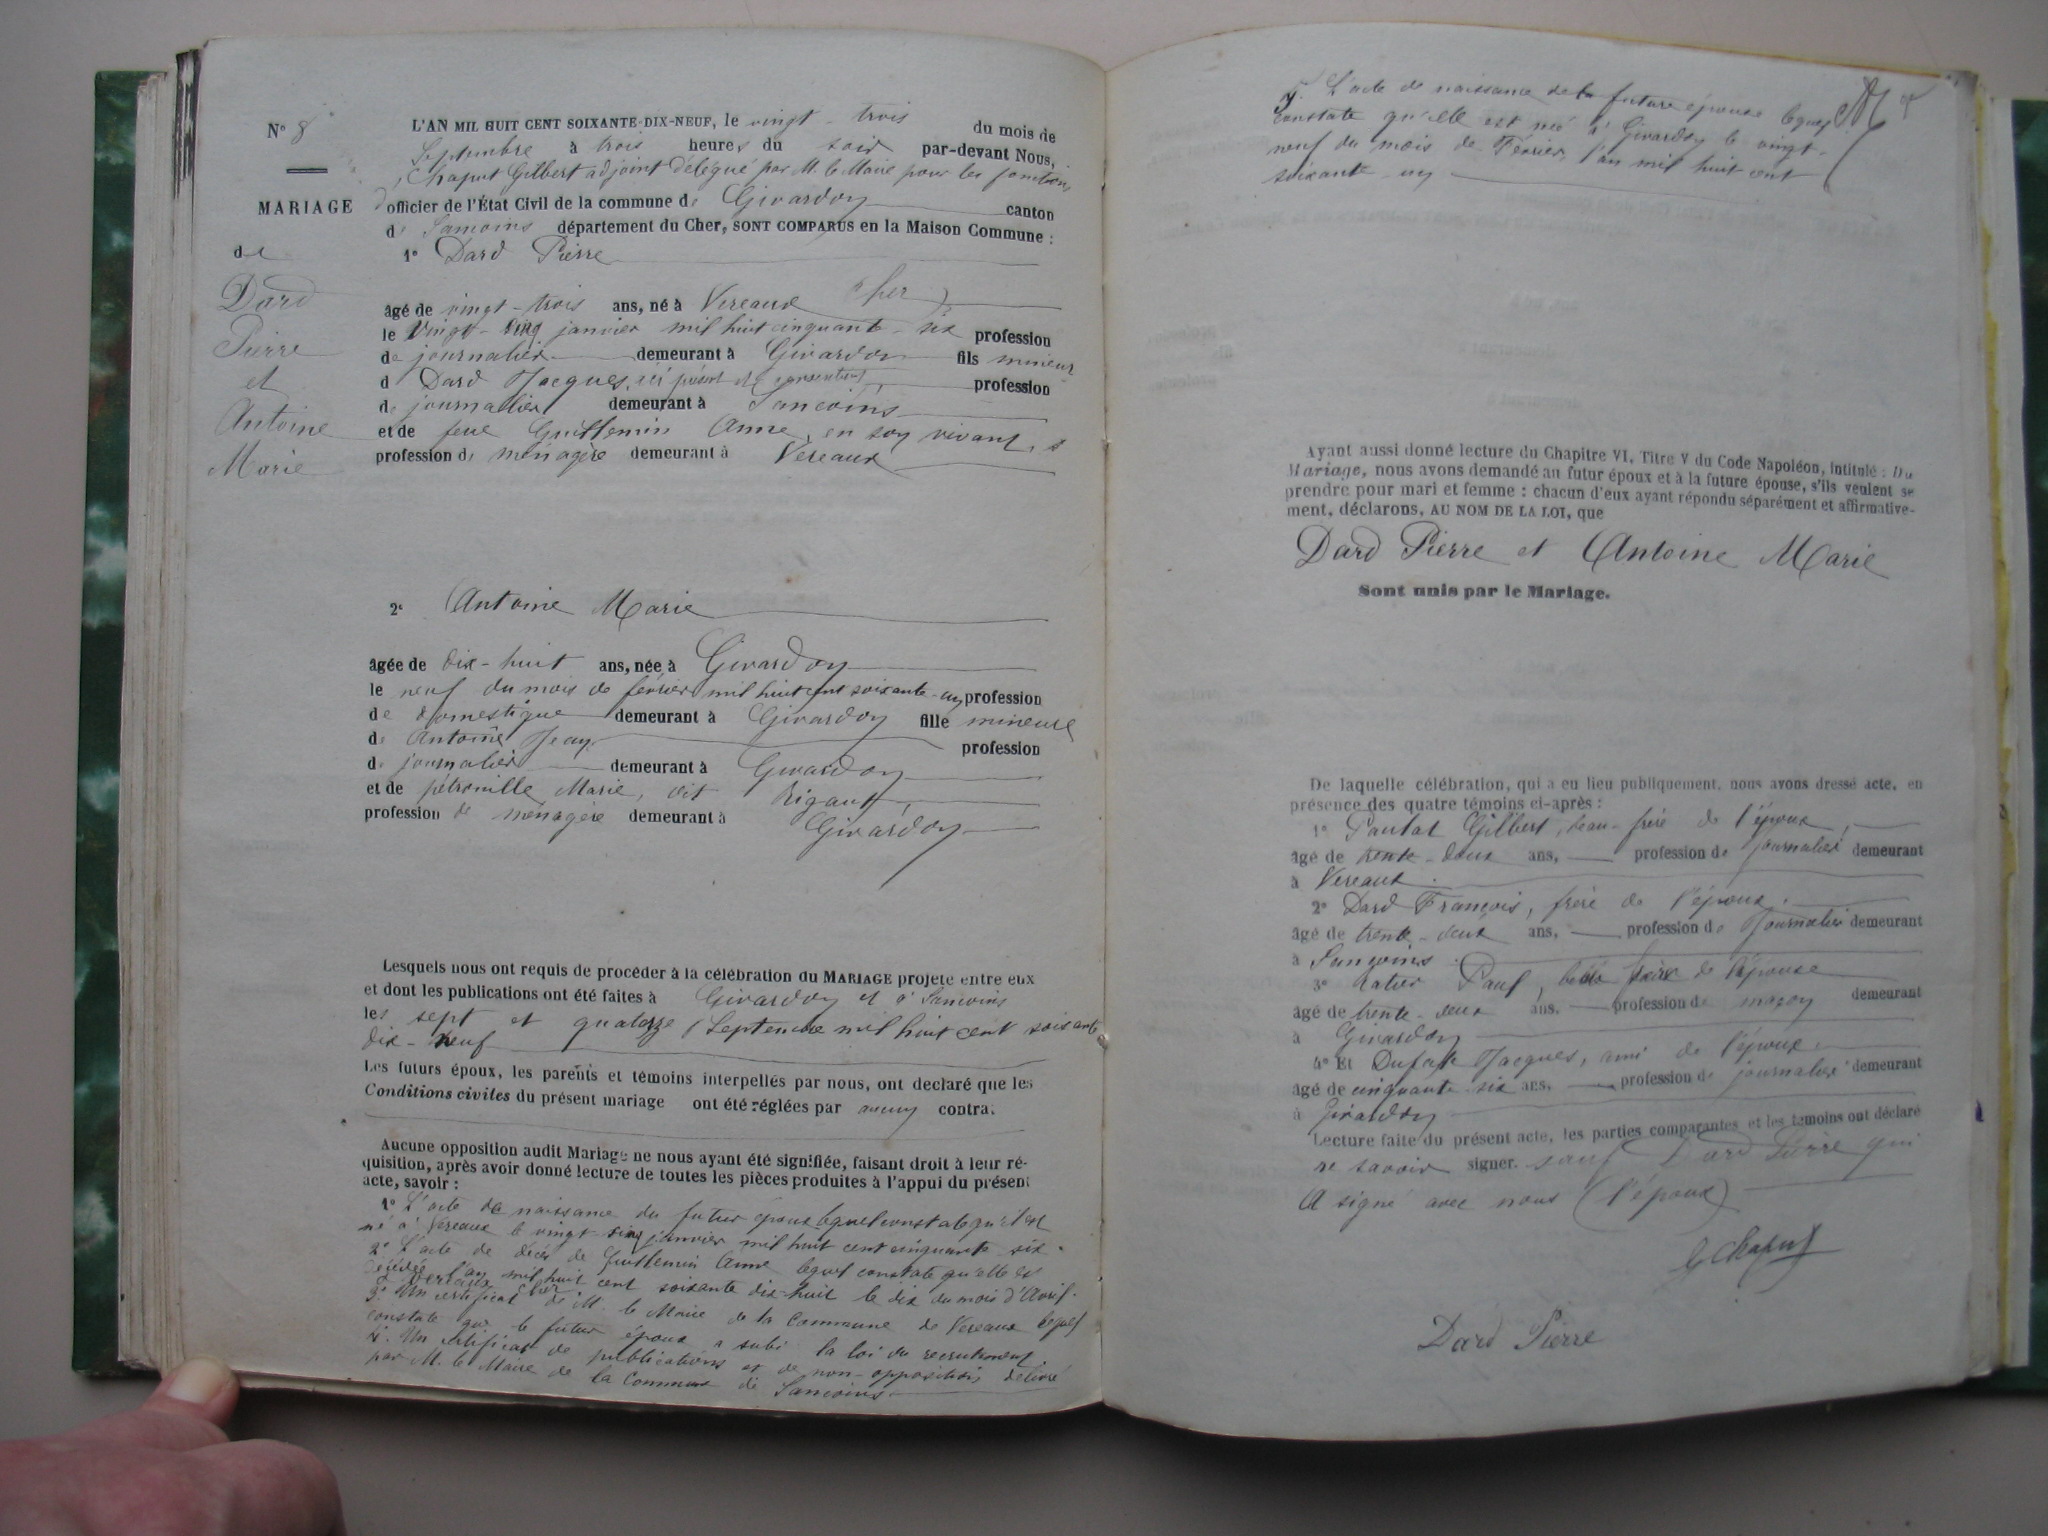 N° 8
MARIAGE
de
Dard
Pierre
et
Antoine
Marie
L'AN MIL HUIT CENT SOIXANTE-DIX-NEUF, le vingt-trois du mois de
Septembre à trois heures du soir par-devant Nous,
Chaput Gilbert adjoint délégué par M. le Maire pour les fonctions
d'officier de l'État Civil de la commune de Givardon canton
de Sancoins département du Cher, SONT COMPARUS en la Maison Commune :
1° Dard Pierre
âgé de vingt-trois ans, né à Vereaux (Cher)
le vingt-cinq janvier mil huit cinquante-six profession
de journalier demeurant à Givardon fils mineur
d Dard Jacques, ici présent et consentant, profession
de journalier demeurant à Sancoins
et de feue Guillemin Anne, en son vivant,
profession de ménagère demeurant à Vereaux
2° Antoine Marie
âgée de dix-huit ans, née à Givardon
le neuf du mois de février mil huit cent soixante-un profession
de domestique demeurant à Givardon fille mineure
de Antoine Jean profession
de journalier demeurant à Givardon
et de pétronille Marie, dit Rigaut,
profession de ménagère demeurant à Givardon
Lesquels nous ont requis de procéder à la célébration du MARIAGE projeté entre eux
et dont les publications ont été faites à Givardon et à Sancoins
les sept et quatorze Septembre mil huit cent soixante
dix-neuf
Les futurs époux, les parents et témoins interpellés par nous, ont déclaré que les
Conditions civiles du présent mariage ont été réglées par aucun contra.
Aucune opposition audit Mariage ne nous ayant été signifiée, faisant droit à leur ré-
quisition, après avoir donné lecture de toutes les pièces produites à l'appui du présent
acte, savoir :
1° L'acte de naissance du futur époux lequel constate qu'il est
né à Vereaux le vingt-cinq janvier mil huit cent cinquante-six.
2° L'acte de décès de Guillemin Anne lequel constate qu'elle est
décédée l'an mil huit cent soixante dix-huit le dix du mois d'Avril.
à Vereaux Cher
3° Un certificat de M. le Maire de la Commune de Vereaux lequel
constate que le futur époux a subi la loi du recrutement
4° Un certificat de publications et de non-opposition délivré
par M. le Maire de la Commune de Sancoins
5° L'acte de naissance de la future épouse lequel
constate qu'elle est née à Givardon le vingt-
neuf du mois de Février, l'an mil huit cent
soixante un
Ayant aussi donné lecture du Chapitre VI, Titre V du Code Napoléon, intitulé : Du
Mariage, nous avons demandé au futur époux et à la future épouse, s'ils veulent se
prendre pour mari et femme : chacun d'eux ayant répondu séparément et affirmative-
ment, déclarons, AU NOM DE LA LOI, que
Dard Pierre et Antoine Marie
Sont unis par le Mariage.
De laquelle célébration, qui a eu lieu publiquement, nous avons dressé acte, en
présence des quatre témoins ci-après :
1° Pautat Gilbert, beau-frère de l'époux,
âgé de trente-deux ans, profession de journalier demeurant
à Vereaux.
2° Dard François, frère de l'époux,
âgé de trente-deux ans, profession de Journalier demeurant
à Sancoins.
3° Ratier Paul, beau frère de l'épouse
âgé de trente-deux ans, profession de maçon demeurant
à Givardon
4° Et Jacques, ami de l'époux.
âgé de cinquante-six ans, profession de journalier demeurant
à Givardon
Lecture faite du présent acte, les parties comparantes et les témoins ont déclaré
ne savoir signer. sauf Dard Pierre qui
a signé avec nous (l'époux)
G Chaput
Dard Pierre